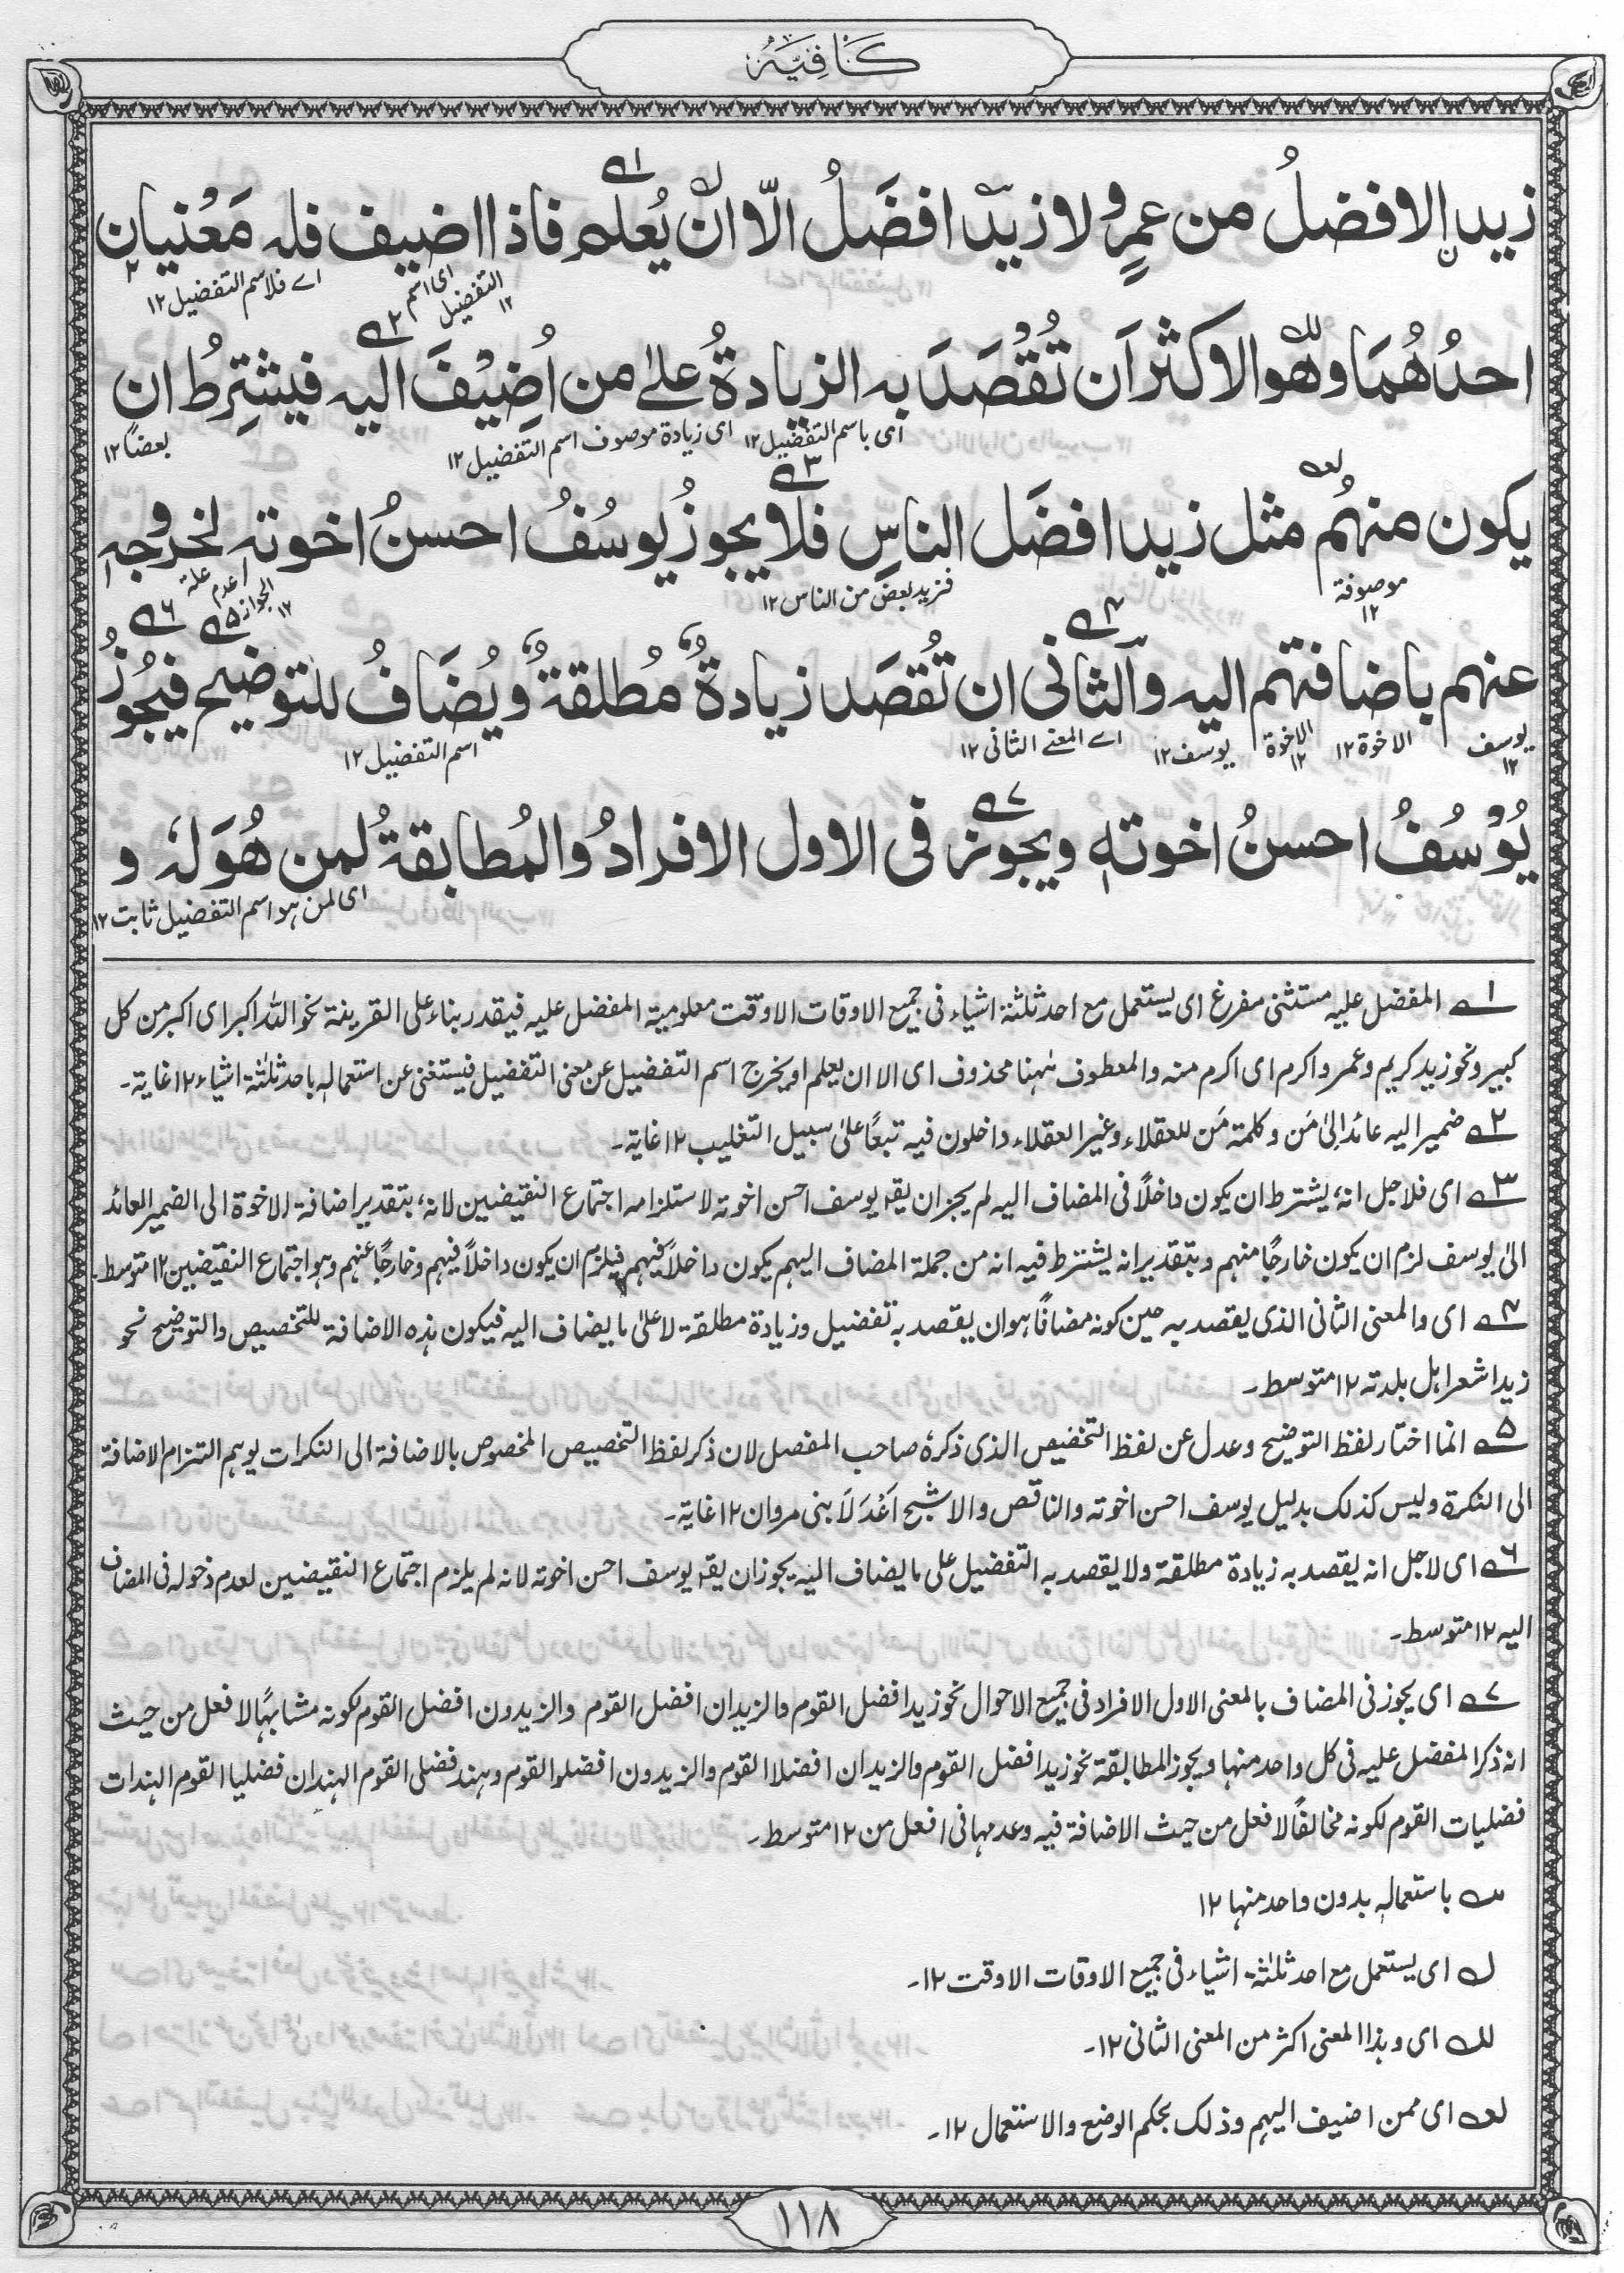 كَافِيَه
زيدن الافضلُ من عمرٍو ولا زيدٌ افضَلُ الّا ان يُعلم فاذا اضيف فله مَعْنيان
اى اسم التفضيل ١٢
اے فلاسم التفضيل ١٢
احدُهُمَا وهو الاكثر اَن تُقْصَدَ به الزيادةُ علىٰ من اُضِيْفَ اليه فيشترِطُ ان
اى باسم التفضيل ١٢
اى زيادة موصوف اسم التفضيل ١٢
بعضًا ١٢
يكون منهُم مثل زيد افضَل الناسِ فلا يجوزُ يوسُفُ احسنُ اخوته لخروجه
موصوفة ١٢
فزيد بعض من الناس ١٢
علة عدم الجواز ١٢
عنهم باضافتهم اليه والثانى ان تُقصَد زيادةٌ مُطلقةٌ ويُضَافُ للتوضيح فيجُوزُ
يوسف ١٢
الاخوة ١٢
الاخوة ١٢
يوسف ١٢
اے المعنے الثانى ١٢
اسم التفضيل ١٢
يُوْسُفُ احسنُ اخوتهٖ ويجوز فى الاول الافرادُ والمُطابقةُ لمن هُوَ لهٗ و
اى لمن هو اسم التفضيل ثابت ١٢
١ے المفضل عليه مستثنى مفرغ اى يستعمل مع احد ثلثة اشياء فى جميع الاوقات الا وقت معلومية المفضل عليه فيقدر بناء على القرينة نحو الله اكبر اى اكبر من كل
كبير ونحو زيد كريم وعمرو اكرم اى اكرم منه والمعطوف ههنا محذوف اى الا ان يعلم او يخرج اسم التفضيل عن معنى التفضيل فيستغنى عن استعماله باحد ثلثة اشياء ١٢ غاية۔
٢ے ضمير اليه عائد الىٰ مَن وكلمة مَن للعقلاء وغير العقلاء داخلون فيه تبعًا علىٰ سبيل التغليب ١٢ غاية۔
٣ے اى فلاجل انه يشترط ان يكون داخلًا فى المضاف اليه لم يجز ان يقۀ يوسف احسن اخوته لاستلزامه اجتماع النقيضين لانه بتقدير اضافة الاخوة الى الضمير العائد
الىٰ يوسف لزم ان يكون خارجًا منهم وبتقدير انه يشترط فيه انه من جملة المضاف اليهم يكون داخلًا فيهم فيلزم ان يكون داخلًا فيهم وخارجًا عنهم وهو اجتماع النقيضين ١٢ متوسط۔
٤ے اى والمعنى الثانى الذى يقصد به حين كونه مضافًا هو ان يقصد به تفضيل وزيادة مطلقة لا علىٰ ما يضاف اليه فيكون هذه الاضافة للتخصيص والتوضيح نحو
زيد اشعر اهل بلدته ١٢ متوسط۔
٥ے انما اختار لفظ التوضيح وعدل عن لفظ التخصيص الذى ذكره صاحب المفصل لان ذكر لفظ التخصيص المخصوص بالاضافة الى النكرات يوهم التزام الاضافة
الى النكرة وليس كذلك بدليل يوسف احسن اخوته والناقص والاشج اَعْدَلَا بنى مروان ١٢ غاية۔
٦ے اى لاجل انه يقصد به زيادة مطلقة ولا يقصد به التفضيل على ما يضاف اليه يجوز ان يقۀ يوسف احسن اخوته لانه لم يلزم اجتماع النقيضين لعدم دخوله فى المضاف
اليه ١٢ متوسط۔
٧ے اى يجوز فى المضاف بالمعنى الاول الافراد فى جميع الاحوال نحو زيد افضل القوم والزيدان افضل القوم والزيدون افضل القوم لكونه مشابهًا لافعل من حيث
انه ذكر المفضل عليه فى كل واحد منها ويجوز المطابقة نحو زيد افضل القوم والزيدان افضلا القوم والزيدون افضلو القوم وهند فضلى القوم الهندان فضليا القوم الهندات
فضليات القوم لكونه مخالفًا لافعل من حيث الاضافة فيه وعدمها فى افعل من ١٢ متوسط۔
باستعماله بدون واحد منها ١٢
لـ اى يستعمل مع احد ثلثة اشياء فى جميع الاوقات الا وقت ١٢۔
للـ اى وهذا المعنى اكثر من المعنى الثانى ١٢۔
اى ممن اضيف اليهم وذلك بحكم الوضع والاستعمال ١٢۔
١١٨